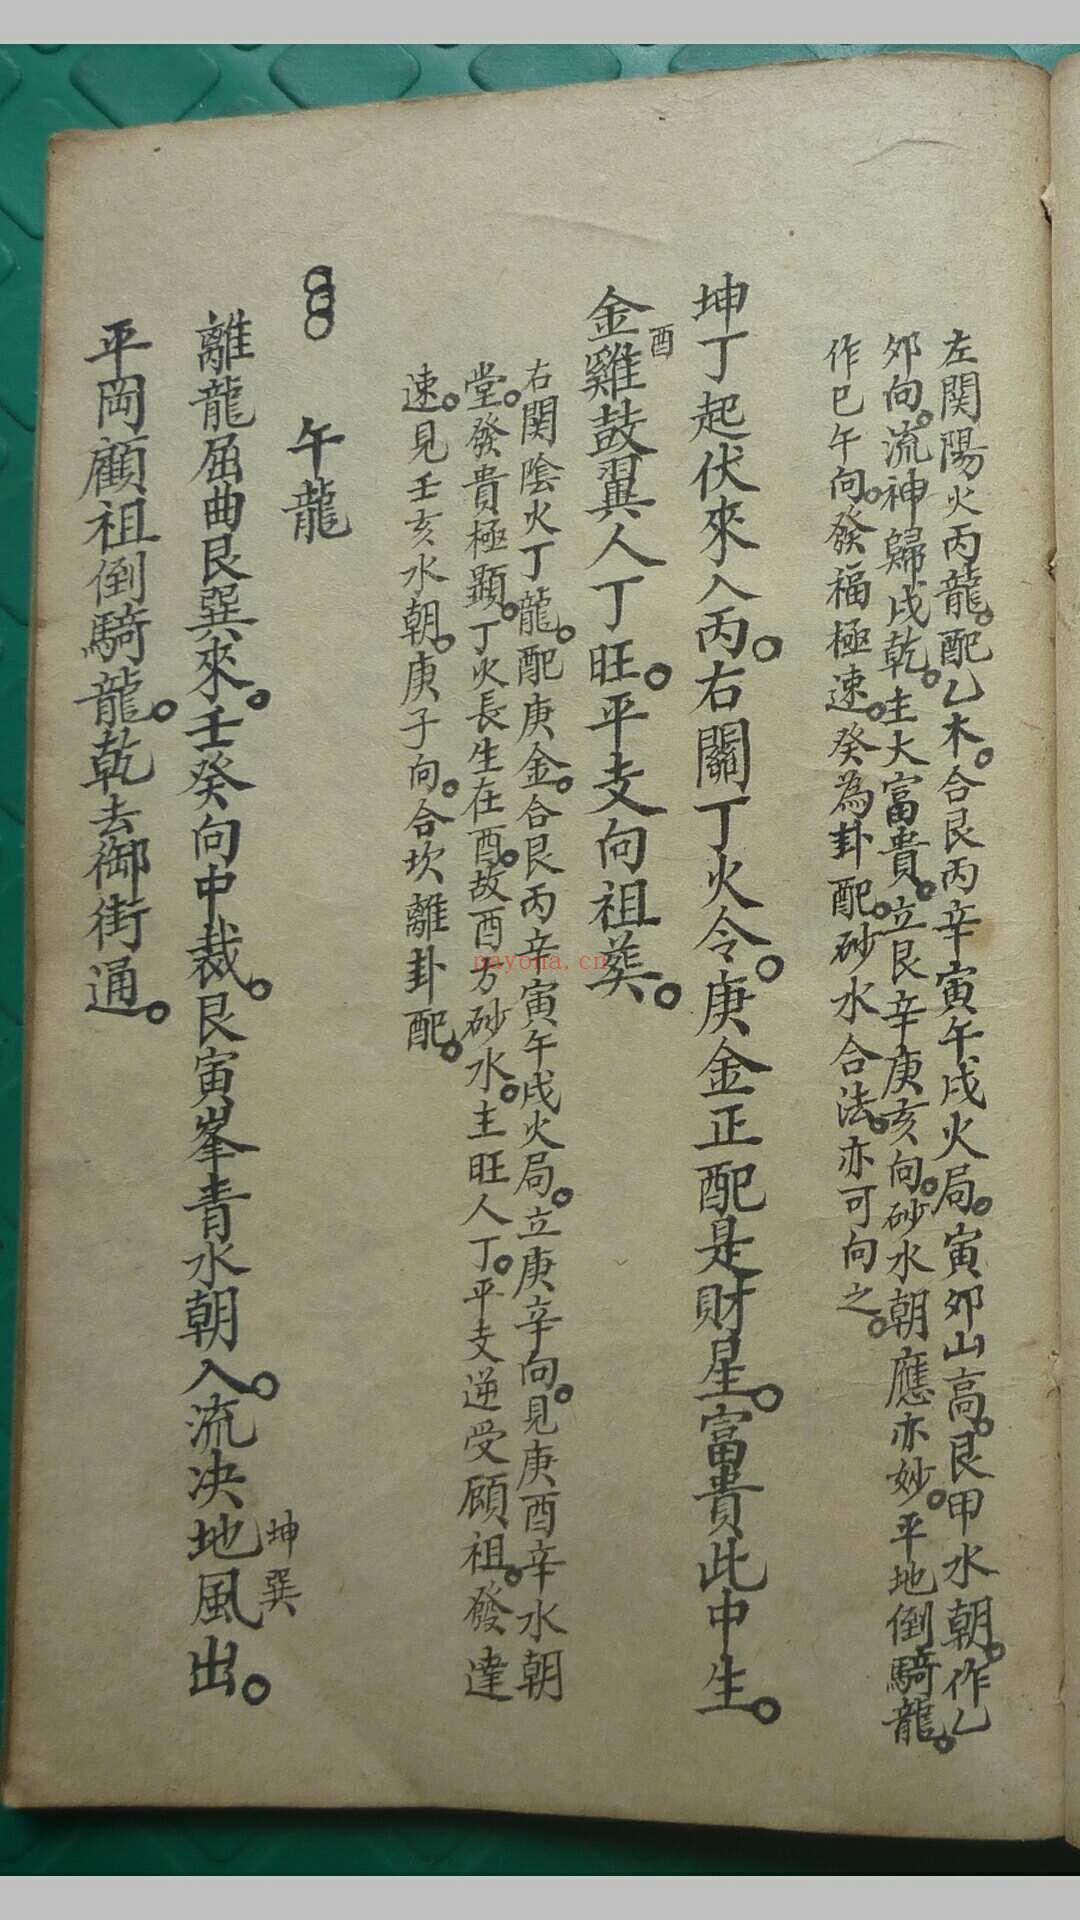 左関陽火丙龍。配乙木。合艮丙辛寅午戌火局。寅夘山高。艮甲水朝。作乙
夘向。流神歸戌乾。主大富貴。立艮辛庚亥向。砂水朝應亦妙。平地倒騎龍。
作巳午向。發福極速。癸為卦配。砂水合法。亦可向之。
坤丁起伏來入丙。右關丁火令。庚金正配是財星。富貴此中生。
金雞鼓翼人丁旺。平支向祖葬。
酉
右関陰火丁龍。配庚金。合艮丙辛寅午戌火局。立庚辛向。見庚酉辛水朝
堂。發貴極顯。丁火長生在酉。故酉方砂水。主旺人丁。平支逆受顧祖。發達
速。見壬亥水朝。庚子向。合坎離卦配。
午龍
離龍屈曲艮巽來。壬癸向中裁。艮寅峯青水朝入。流決地風出。
坤巽
平岡顧祖倒騎龍。乾去御街通。
nayona.cn